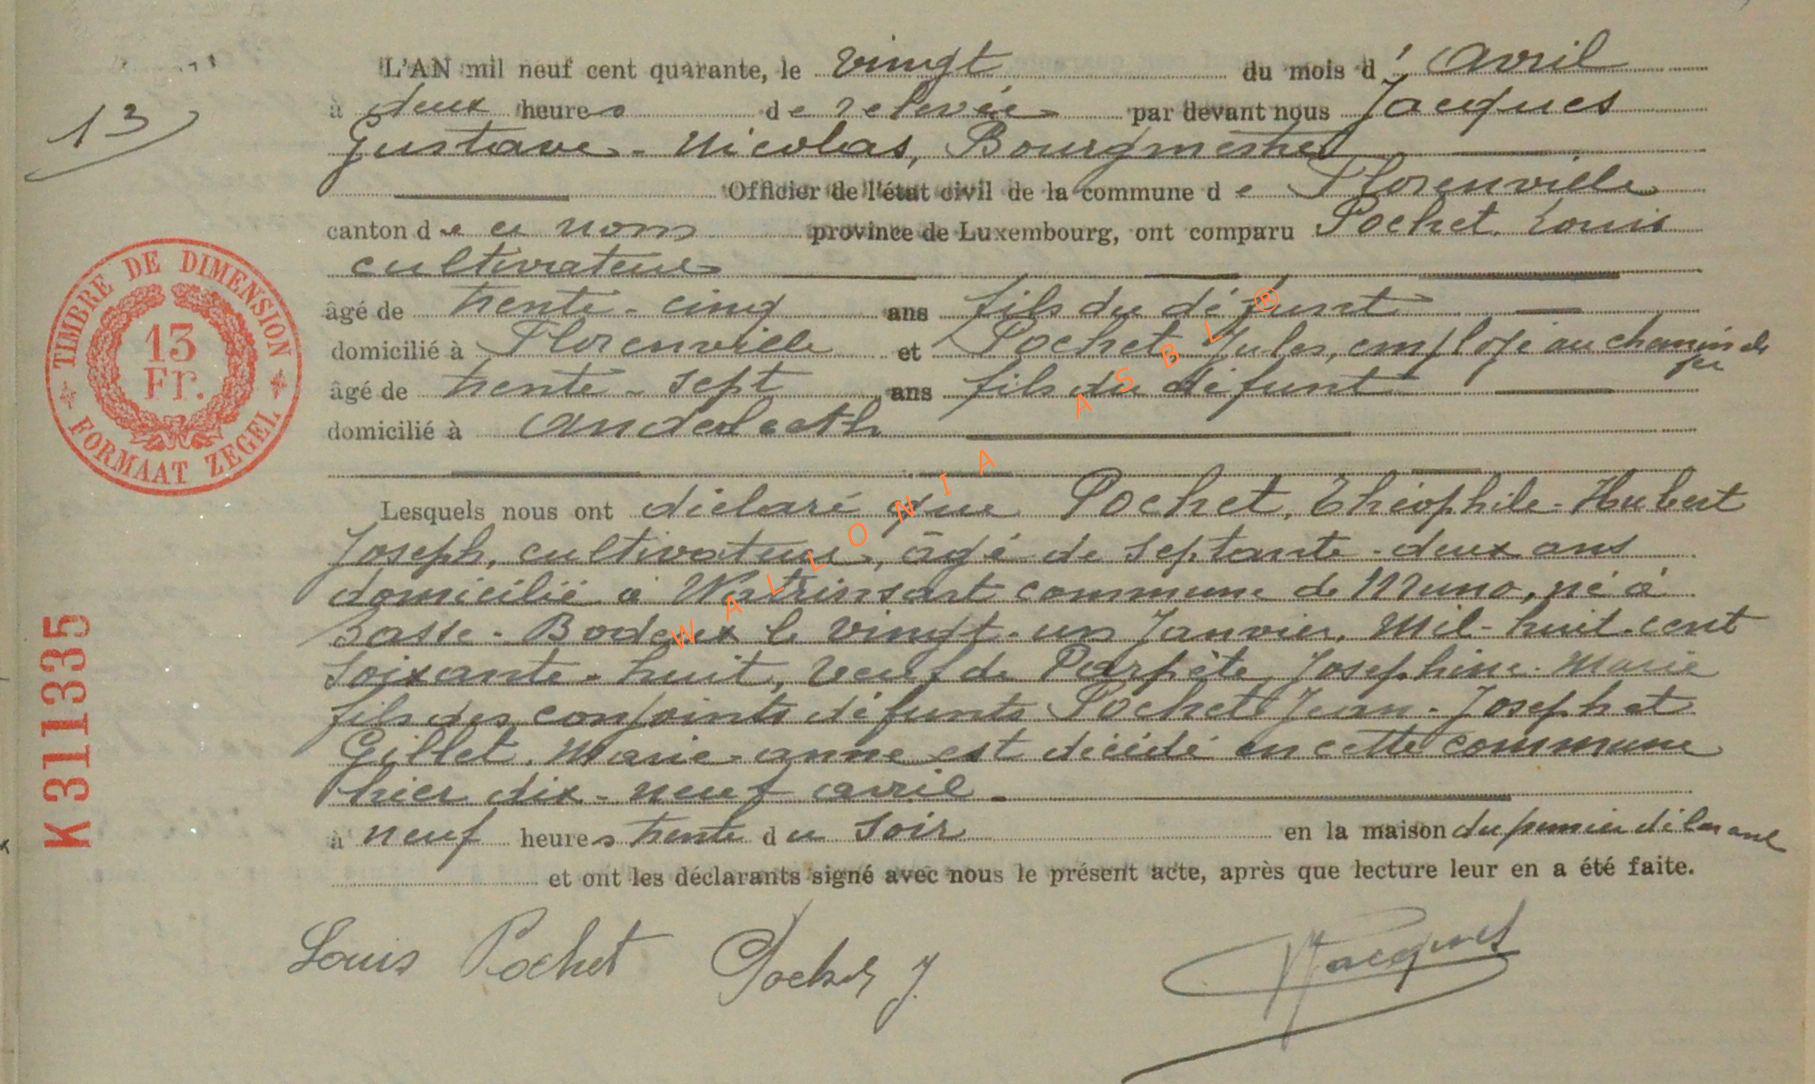 L'AN mil neuf cent quarante, le vingt du mois d' Avril
13
à deux heures de relevée par devant nous Jacques
Gustave-Nicolas, Bourgmestre
Officier de l'état civil de la commune de Florenville
canton de ce nom province de Luxembourg, ont comparu Pochet, Louis
cultivateur
âgé de trente-cinq ans fils du défunt
domicilié à Florenville et Pochet Jules, employé au chemin de
fer
âgé de trente-sept ans fils du défunt
domicilié à Anderlecth
Lesquels nous ont déclaré que Pochet, Théophile-Hubert
Joseph, cultivateur, âgé de septante-deux ans
domicilié à Watrinsart commune de Muno, né à
Basse-Bodeux le vingt-un Janvier, Mil-huit-cent
soixante-huit, veuf de Parpète, Josephine-Marie
fils des conjoints défunts Pochet Jean-Joseph et
Gillet, Marie-anne est décédé en cette commune
hier dix-neuf avril
à neuf heures trente du soir en la maison du premier déclarant
et ont les déclarants signé avec nous le présent acte, après que lecture leur en a été faite.
Louis Pochet Pochet J. Jacques
TIMBRE DE DIMENSION
13
Fr.
FORMAAT ZEGEL
K311335
WALLONIA ASBL ®